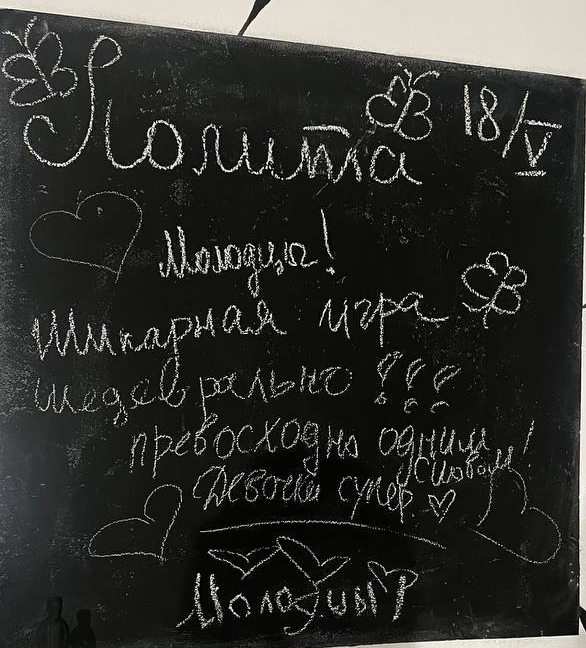 Лолита 18/V
Молодцы!
Шикарная игра
шедеврально !!!
превосходно одним
словом!
Девочки супер
Молодцы